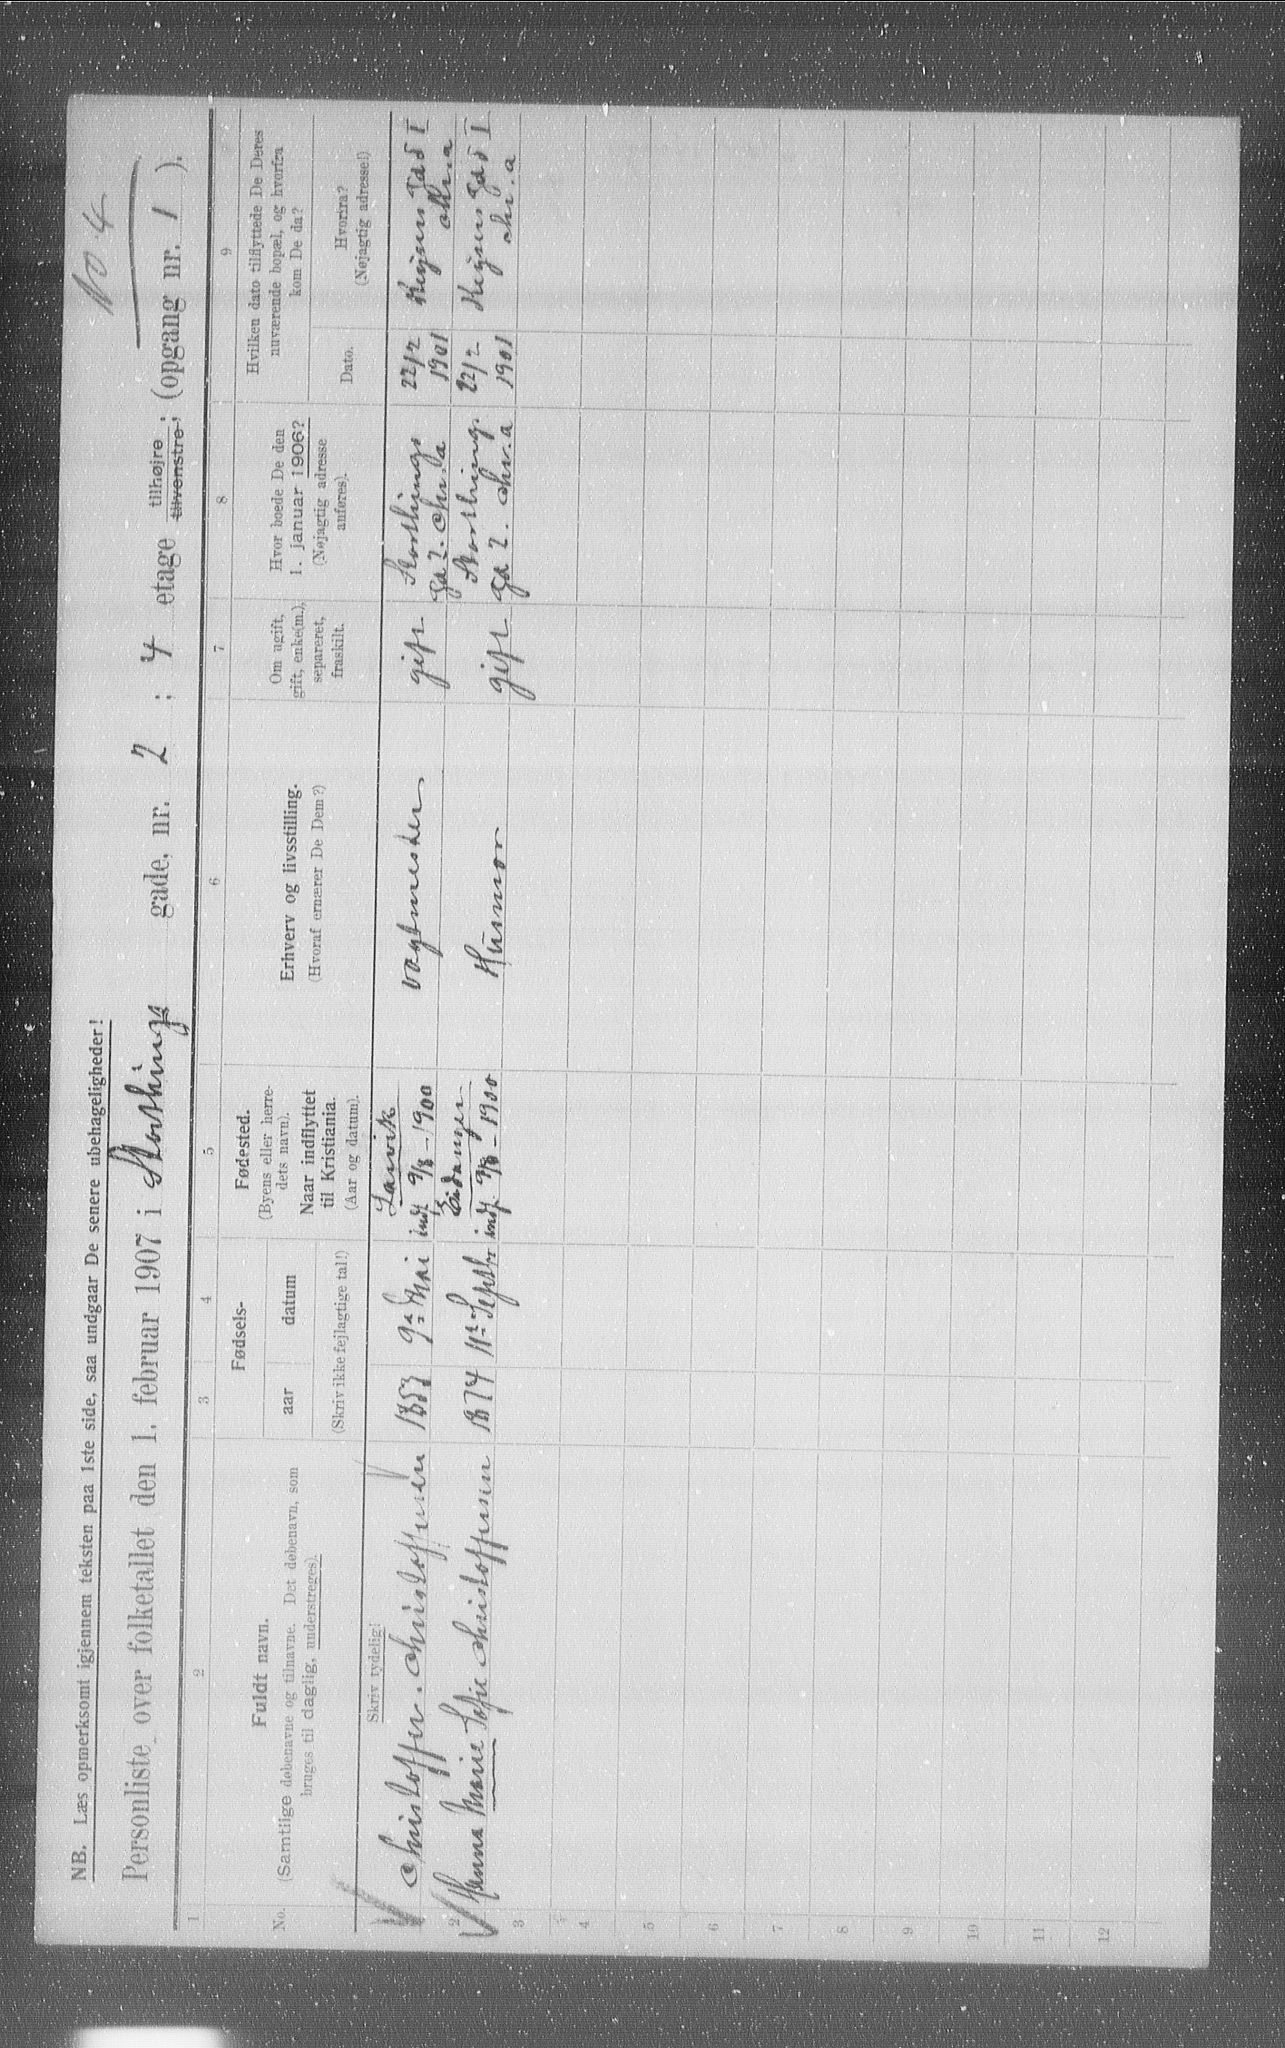 No. 4
NB. Læs opmerksomt igjennem teksten paa 1ste side, saa undgaar De senere ubehageligheder!
Personliste over folketallet den 1. februar 1907 i Storthings gade, nr. 2 ; 4 etage tilhøjre ; (opgang nr. 1 ).
tilvenstre
1 2 3 4 5 6 7 8 9
No.
Fuldt navn.
(Samtlige døbenavne og tilnavne. Det døbenavn, som
bruges til daglig, understreges).
Skriv tydelig!
Fødsels-
aar datum
(Skriv ikke fejlagtige tal!)
Fødested.
(Byens eller herre-
dets navn).
Naar indflyttet
til Kristiania.
(Aar og datum).
Erhverv og livsstilling.
(Hvoraf ernærer De Dem?)
Om ugift,
gift, enke(m.),
separeret,
fraskilt.
Hvor boede De den
1. januar 1906?
(Nøjagtig adresse
anføres).
Hvilken dato tilflyttede De Deres
nuværende bopæl, og hvorfra
kom De da?
Dato.
Hvorfra?
(Nøjagtig adresse!)
Christoffer Christoffersen 1853 9de Mai Larvik
indf 9/8 - 1900 vagtmester gift Storthings
ga 2. Chr.a 22/2
1901
Chr.a
2 Hanna Marie Sofie Christoffersen 1874 11te Septbr Eidanger
indf 9/8 - 1900 Husmor gift Storthing.
ga 2. Chr.a 22/2
1901
Chr.a
3
4
5
6
7
8
9
10
11
12